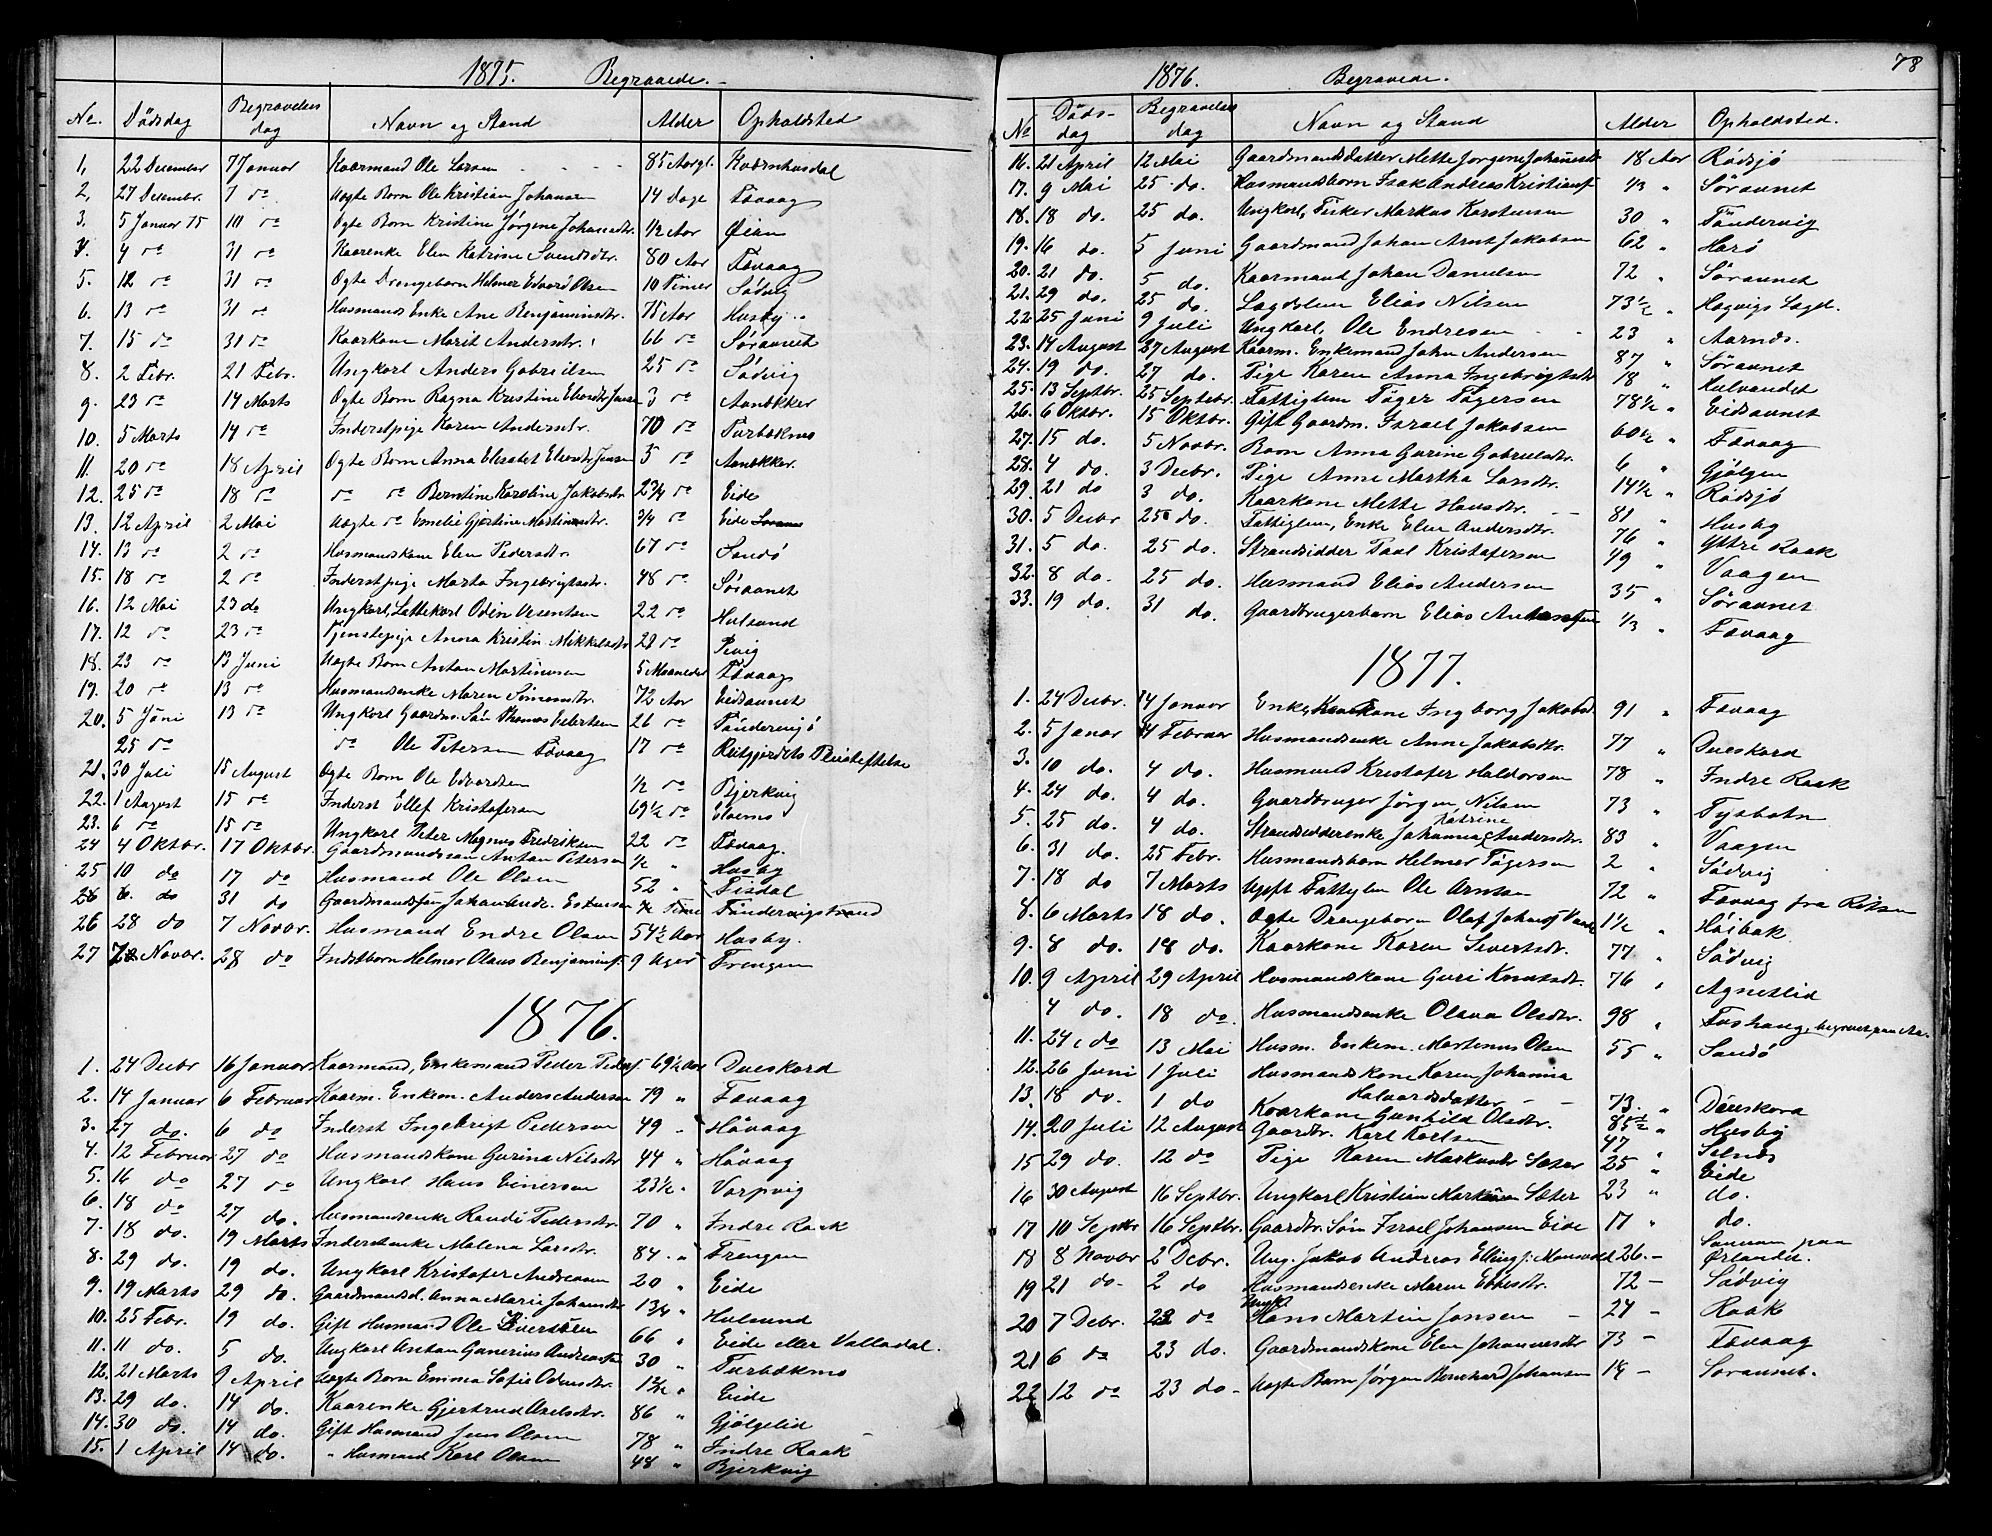 1875. Begravede.
No. Dödsdag Begravelses dag Navn og Stand Alder Opholdsted
1, 22 December 7 Januar Kaarmand Ole Larsen 85 Aar Kværnhusdal
2, 27 Decembr. 7 do Uægte Barn Ole Kristian Johansen 14 Dage Tævaag
3. 5 Januar 75 10 do Ægte Barn Kristine Jørgine Johansdtr. 1/2 Aar Øien
4. 4 do 31 do Kaarenke Elen Katrine Svendsdtr. 80 Aar Tævaag
5. 12 do 31 do Ægte Drengebarn Helmer Edvard Olsen 10 Timer Södvig
6. 13 do 31 do Husmands Enke Ane Benjaminsdtr. 75 Aar Husby
7. 15 do 31 do Kaarkone Marit Andersdtr. 66 do Søraunet
8. 2 Febr. 21 Febr. Ungkarl Anders Gabrielsen 25 do Södvig
9. 23 do 14 Marts Ægte Barn Ragna Kristine Jensen 3 do
10. 5 Marts 14 do Inderstpige Karen Andersdtr. 70 do Turbækmo
11. 20 do 18 April Ægte Barn Anna Elisabet Jensen 5 do
12. 25 do 18 do do do Berntine Karoline Jakobsdtr 2 3/4 do Eide
13. 12 April 2 Mai Uægte do Emelie Gjertine Martinusdtr. 3/4 do Eide
14. 13 do 2 do Husmandskone Elen Pedersdtr. 67 do Sandö
15. 18 do 2 do Inderstpige Marta Ingebrigtsdtr. 48 do Søraunet
16. 12 Mai 23 do Ungkarl, Odin Arentsen 22 do Hulsund
17. 12 do 23 do Tjenstepige Anna Kristin Mikkelsdtr 28 do
18. 23 do 13 Juni Uægte Barn Anton Martinusen 5 Maaneder Tævaag
19. 20 do 13 do Husmandsenke Maren Simonsdtr. 72 Aar Eidsaunet
20. 5 Juni 13 do Ungkarl Gaardm. Søn Thomas Eilertsen 26 do Tøndervig
25 do do Ole Petersen Tævaag 17 do
21. 30 Juli 15 August Ægte Barn Ole Edvardsen 1/2 do Bjerkvig
22. 1 August 15 do Inderst Ellef Kristofersen 69 1/2 do
23. 6 do 15 do Ungkarl Peter Magnus Fredriksen 22 do Tævaag
24 4 Oktbr. 17 Oktbr. Gaardmandssøn Anton Petersen 1/2 " Husby
25 10 do 17 do Husmand Ole Olsen 52 " Tisdal
26 6. do 31 do Gaardmandssøn Johan Time Tøndervigstrand
26 28 do 7 Novbr. Husmand Endre Olsen 54 1/2 Aar Husby.
27 Novbr. 28 do Helmer Olaus Benjamins. 9 Uger Trengen
1876.
1. 24 Decbr 16 Januar Kaarmand, Enkemand Peder Peders. 69 1/2 Aar Dueskard
2. 14 Januar 6 Februar Kaarm. Enkem. Anders Andersen 79 " Tævaag
3. 27 do. 6 do Inderst Ingebrigt Pedersen 49 " Håvaag
4. 12 Februar 27 do Husmandskone Gurina Nilsdtr 44 " Håvaag
5. 16 do 27 do Ungkarl Hans Einersen 23 1/2 " Varpvig
6. 18 do 27 do. Husmandsenke Randi Pedersdtr. 70 " Indre Raak
7. 18 do. 19 Marts Inderstenke Malena Larsdtr. 84. " Trengen
8. 29 do. 19 do. Ungkarl Kristofer Andreasen 20 " Eide
9. 19 Marts 29 do. Gaardmandsd. Anna Marie Johansdtr 13/4 " Hulsund
10. 25 Febr. 19 do. Gift Husmand Ole Sivertsen 66 " Eide eller Valladal.
11. 11 do. 5 do. Ungkarl Anton Gunerius Andreassen 30 " Turbækmo
12. 21 Marts 9 April Uægte Barn Emma Sofie Odensdtr. 1 1/2 " Eide
13. 29 do. 14 do. Kaarenke Gjertrud Axelsdtr. 86 " Gjölgelid
14. 30 do. 14 do. Gift Husmand Jens Olsen 78 " Indre Raak
15. 1 April 14 do. " Husmand Karl Olsen 48 " Bjerkvig
78
1876. Begravede.
No Døds-dag Begravelses dag Navn og Stand Alder Opholdsted.
16. 21 April 12 Mai Gaardmandsdatter Mette Jørgene Johansdtr 18 Aar Rödsjö
17. 9 Mai 25 do. Husmandsbarn Isak Andreas Kristians. 1/3 " Söraunet
18. 18 do. 25 do. Ungkarl, Fisker Markus Karstensen 30 " Töndervig
19. 16 do. 5 Juni Gaardmand Johan Arnt Jakobsen 62 " Harö
20. 21 do. 5 do. Kaarmand Johan Danielsen 72 " Söraunet
21. 29 do. 25 do. Lægdslem Elias Nilsen 73 1/2 " Hegvigs Lægd.
22. 25 Juni 9 Juli Ungkarl, Ole Endresen 23 " Aarnes.
23. 14 August 27 August Kaarm. Enkemand John Andersen 87 " Söraunet
24. 19 do. 27 do. Pige Karen Anna Ingebrigtsdtr 18 " Hulvandet
25. 13 Septbr. 25 Septbr. Fattiglem Töger Tögersen 78 1/2 " Eidsaunet
26. 6 Oktbr. 15 Oktbr. Gift Gaardm. Israel Jakobsen 60 1/2 " Tævaag
27. 15 do. 5 Novbr. Barn Anna Gurine Gabrielsdtr. 6 " Gjölgen
28. 4 do. 3 Decbr. Pige Anne Martha Larsdtr. 14 1/2 " Rödsjö
29. 21 do 3 do. Kaarkone Mette Hansdtr. 81 " Husby
30. 5 Decbr 25 do. Fattiglem, Enke Elen Andersdtr. 76 " Yttre Raak
31. 5 do. 25 do. Strandsidder Paul Kristofersen 49 " Vaagen
32. 8 do. 25 do. Husmand Elias Andersen 35 " Söraunet
33. 19 do. 31 do. Gaardbrugerbarn Elias 1/3 " Tævaag
1877.
1. 24 Decbr. 14 Januar Enke, Kaarkone Ingborg Jakobsd. 91 " Tævaag
2. 5 Januar 4 Februar Husmandsenke Anne Jakobsdtr. 77 " Dueskard
3. 10 do. 4 do. Husmand Kristofer Haldorsen 78 " Indre Raak
4. 24 do. 4 do. Gaardbruger Jörgen Nilsen 73 " Tysbotn
5. 25 do. 4 do. Strandsidderenke Johanna Katrine Andersdtr. 83 " Vaagen
6. 31 do. 25 Febr. Husmandsbarn Helmer Tögersen 2 " Södvig
7. 18 do 7 Marts Ugift Fattiglem Ole Arntsen 72 " Tævaag fra Rissen
8. 6 Marts 18 do. Ægte Drengebarn Olaf Johan 1 1/2 " Höibak.
9. 8 do. 18 do. Kaarkone Karen Sivertsdtr. 77 " Södvig
10. 9 April 29 April Husmandskone Guri Knutsdtr. 76 " Agnetlid
4 do. 18 do. Husmandsenke Olava Olsdtr. 98 " Foshaug, begravet paa
11. 24 do 13 Mai Husm. Enkem. Martinus Olsen 55 " Sandö
12. 26 Juni 1 Juli Husmandskone Karen Johanna
Halvardsdatter 73. " Döueskard
13. 18 do. 1 do Kaarkone Gunhild Olsdtr. 85 1/2 " Husby
14. 20 Juli 12 August Gaardbr. Karl Karlsen 47 " Selnes
15 29 do. 12 do Pige Karen Markusdtr Sæter 25 " Eide
16 30 August 16 Septbr. Ungkarl Kristian Markusen Sæter 23 " do.
17 10 Septbr 16 Septbr. Gaardbr. Søn Israel Johansen Eide 17 " do.
18 8 Novbr 2 Decbr. Ung. Jakob Andreas 26 - paa Ørlandet.
19 21 do. 2 do Husmandsenke Maren Ebbesdtr. 72 - Södvig
20 7 Decbr. 23 do Ungk. Hans Martin Jansen 24 - Raak
21 6 do 23 do. Gaardmandskone Elen Johannesdtr 73 - Tævaag
22 12 do 23 do - Uægte Barn Jörgen Bernhard Johansen 14 - Söraunet.